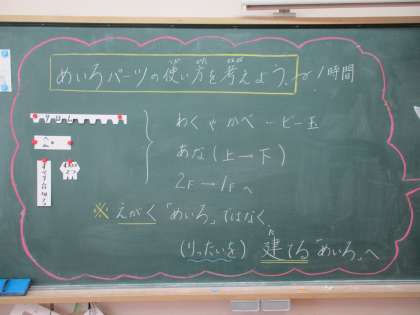 めいろパーツの使い方を考えよう。 1時間
わくやかべ－ビー玉
あな（上→下）
2F→1Fへ
※えがく「めいろ」ではなく、
（りったいを）建てる「めいろ」へ